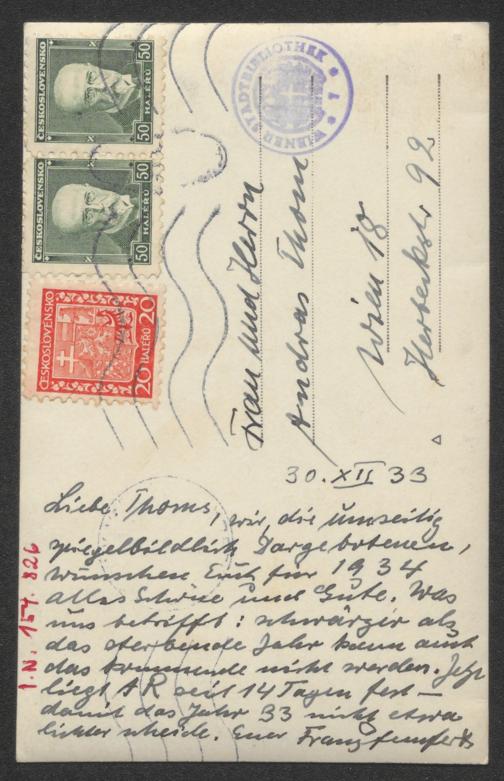 ČESKOSLOVENSKO
50
50
HALÉŘŮ
ČESKOSLOVENSKO
50
50
HALÉŘŮ
ČESKOSLOVENSKO
20
20
HALÉŘŮ
WIENER STADTBIBLIOTHEK
Frau und Herrn
Andreas Thom
Wien 18
Herbeckstr 92
30. XII 33
Liebe Thoms, wir, die umseitig
spiegelbildlich Dargebotenen,
wünschen Euch für 1934
alles Schöne und Gute. Was
uns betrifft: schwärzer als
das sterbende Jahr kann auch
das kommende nicht werden. Jetzt
liegt AR seit 14 Tagen fest –
damit das Jahr 33 nicht etwa
lichter scheide. Euer Franz Pfemfert
I.N. 154.826